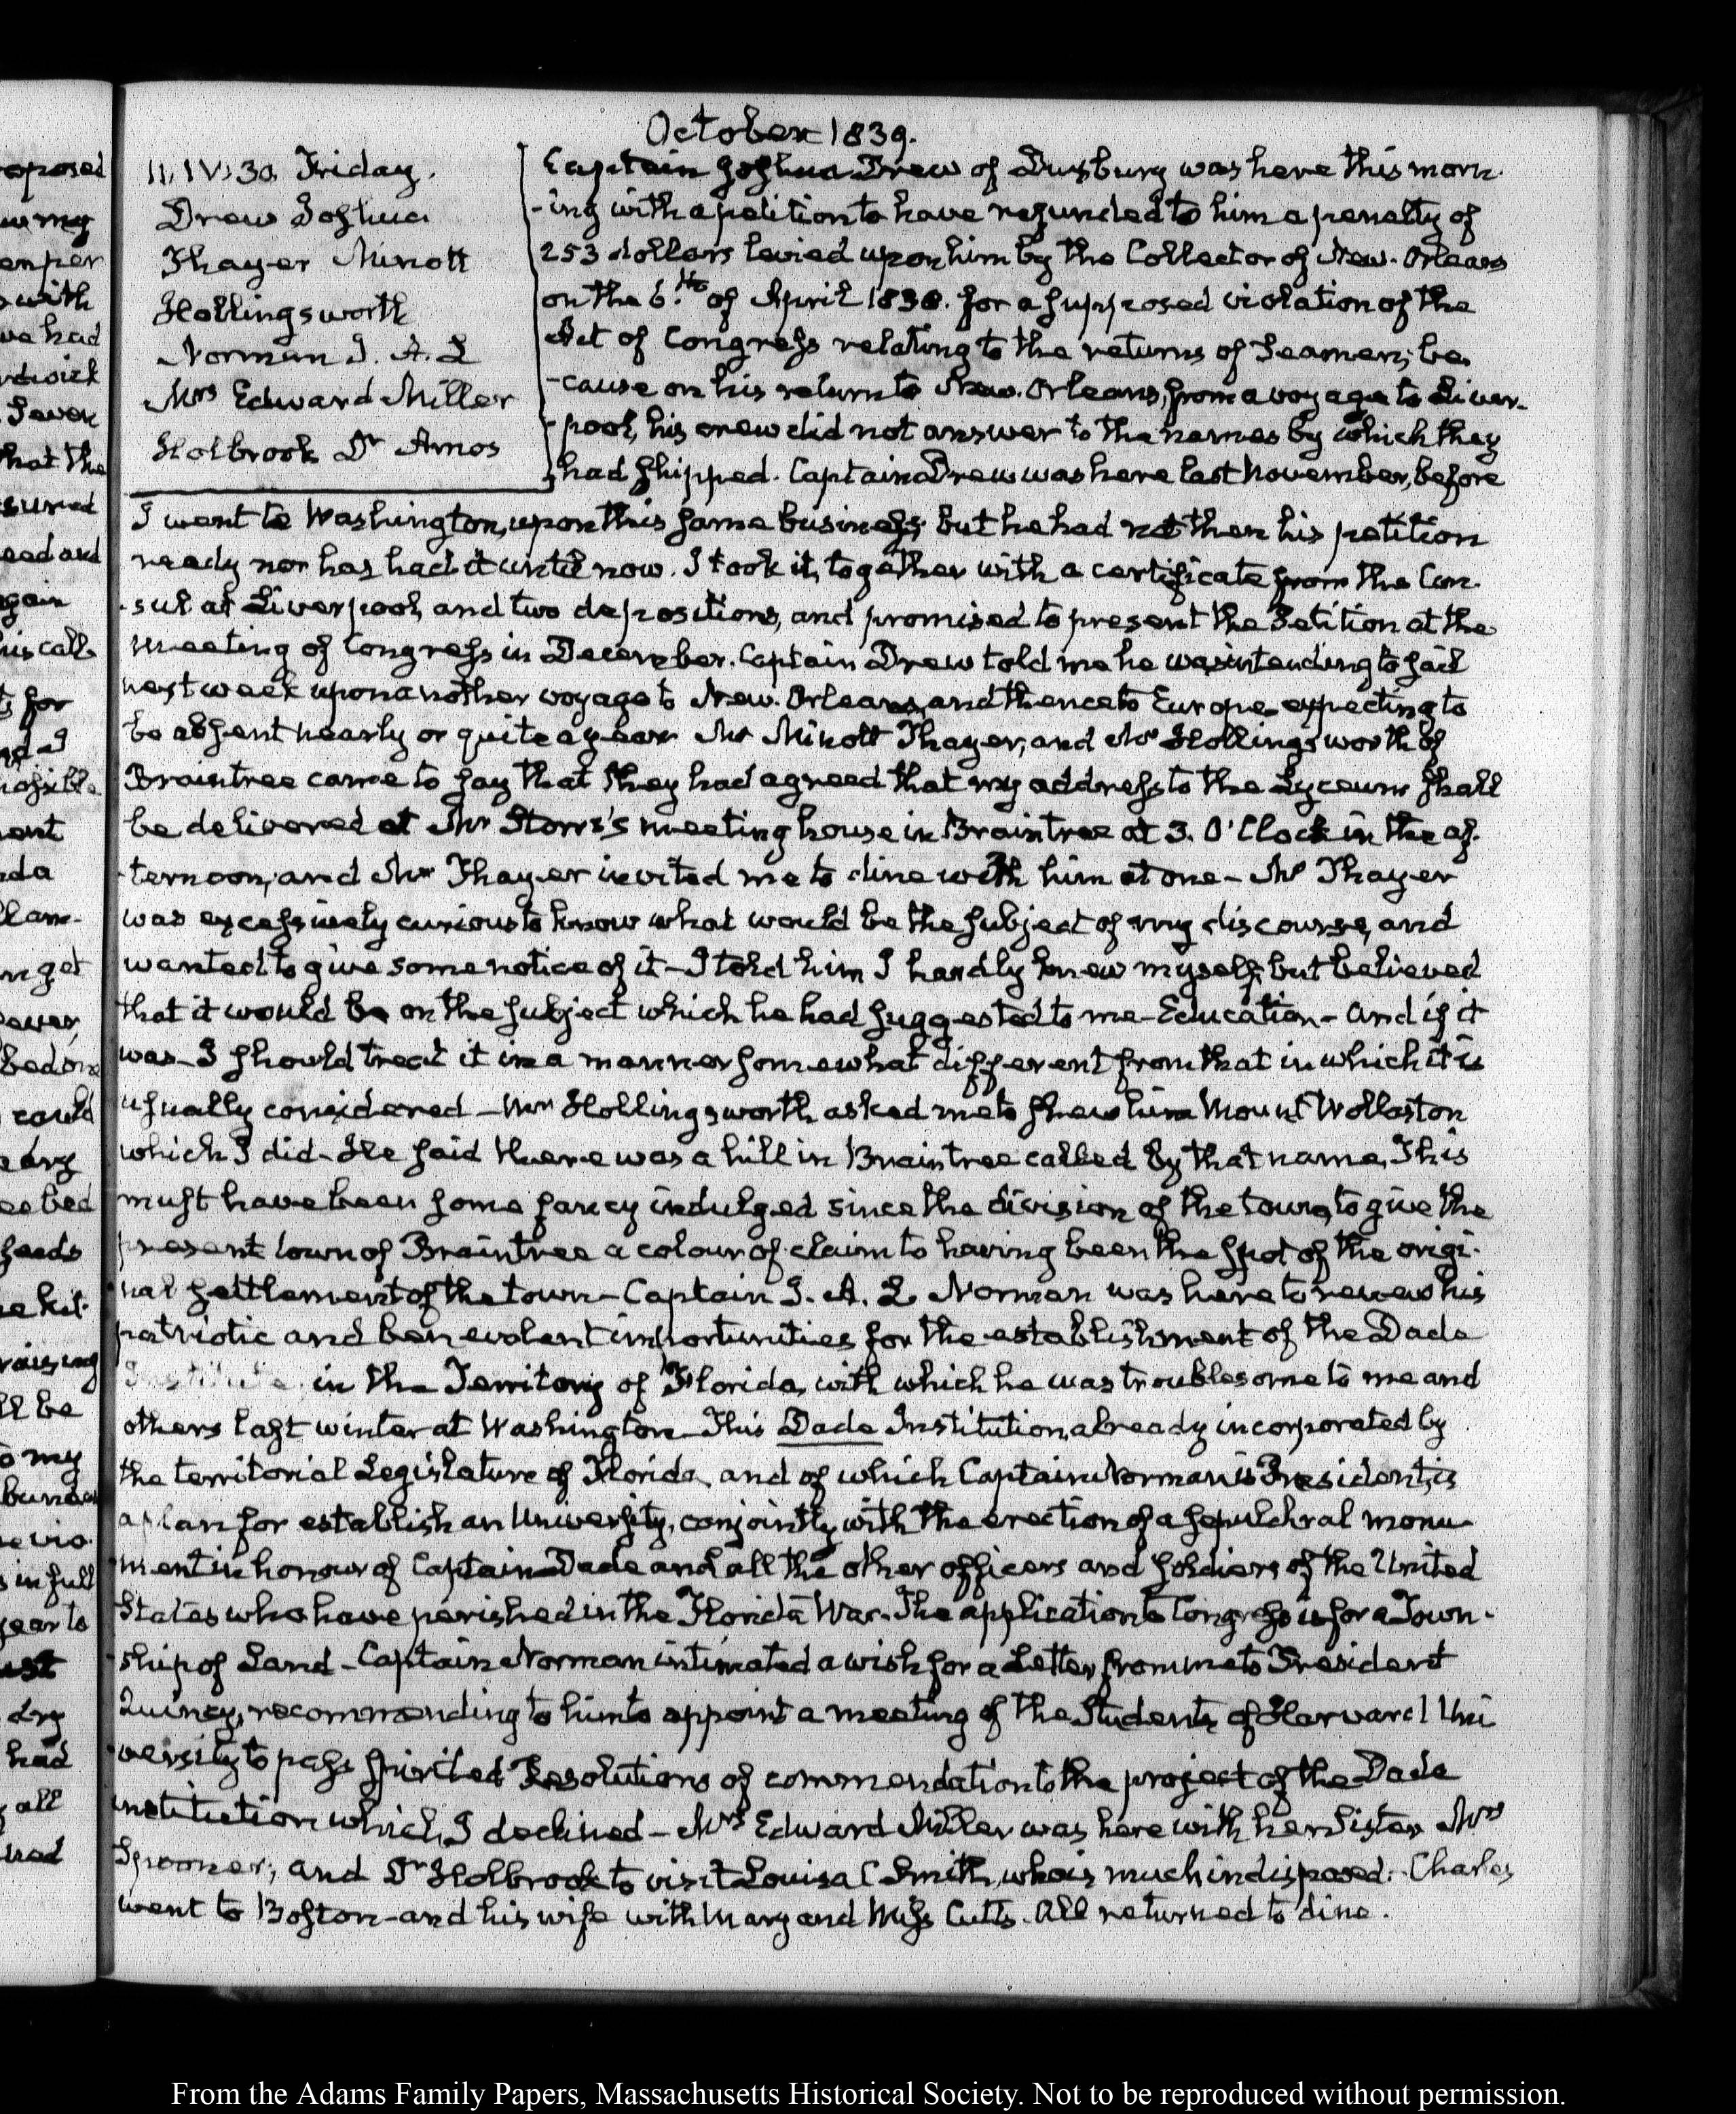 October 1839.
11. IV:30. Friday.
Drew Joshua
Thayer Minott
Hollingsworth
Norman J. A. L
Mrs Edward Miller
Holbrook Dr Amos
Captain Joshua Drew of Duxbury was here this morn-
-ing with a petition to have refunded to him a penalty of
253 dollars levied upon him by the Collector of New-Orleans
on the 6.th of April 1838. for a supposed violation of the
Act of Congress relating to the returns of Seamen; be
-cause on his return to New. Orleans, from a voyage to Liver-
-pool, his crew did not answer to the names by which they
had shipped. Captain Drew was here last November, before
I went to Washington, upon this same business; but he had not then his petition
ready nor has had it until now. I took it, together with a certificate from the Con-
-sul at Liverpool, and two depositions, and promised to present the Petition at the
meeting of Congress in December. Captain Drew told me he was intending to sail
next week upon another voyage to New. Orleans, and thence to Europe, expecting to
be absent nearly or quite a year Mr Minott Thayer, and Mr Hollingsworth of
Braintree came to say that they had agreed that my address to the Lyceum shall
be delivered at Mr Storrs's meeting house in Braintree at 3. O'Clock in the af-
-ternoon, and Mr Thayer invited me to dine with him at one - Mr Thayer
was excessively curious to know what would be the subject of my discourse, and
wanted to give some notice of it - I told him I hardly knew myself, but believed
that it would be on the subject which he had suggested to me - Education - and if it
was - I should treat it in a manner somewhat different from that in which it is
usually considered - Mr Hollingsworth asked me to shew him Mount Wollaston
which I did - He said there was a hill in Braintree called by that name, This
must have been some fancy indulged since the division of the town, to give the
present town of Braintree a colour of claim to having been the spot of the origi-
nal settlement of the town - Captain J. A. L Norman was here to renew his
patriotic and benevolent importunities for the establishment of the Dade
Institute, in the Territory of Florida, with which he was troublesome to me and
others last winter at Washington - This Dade Institution, already incorporated by
the territorial Legislature of Florida, and of which Captain Norman is President, is
a plan for establish an University, conjointly with the erection of a sepulchral monu-
ment in honour of Captain Dade and all the other officers and soldiers of the United
States who have perished in the Florida War. The application to Congress is for a Town-
-ship of Land - Captain Norman intimated a wish for a Letter from me to President
Quincy, recommending to him to appoint a meeting of the Students of Harvard Uni
versity to pass spirited Resolutions of commendation to the project of the Dade
institution which I declined - Mrs Edward Miller was here with her Sister Mrs
Spooner, and Dr Holbrook to visit Louisa C Smith, who is much indisposed. Charles
went to Boston - and his wife with Mary and Miss Cutts. All returned to dine.
oposed
my
emper
with
we had
Seven
that the
sured
ead and
gain
his call
for
nd I
possible
ent
da
lam-
nget
ever,
bed one
could
ee bed
seeds
raising
ll be
o my
in full
year to
dry
had
all
had
From the Adams Family Papers, Massachusetts Historical Society. Not to be reproduced without permission.